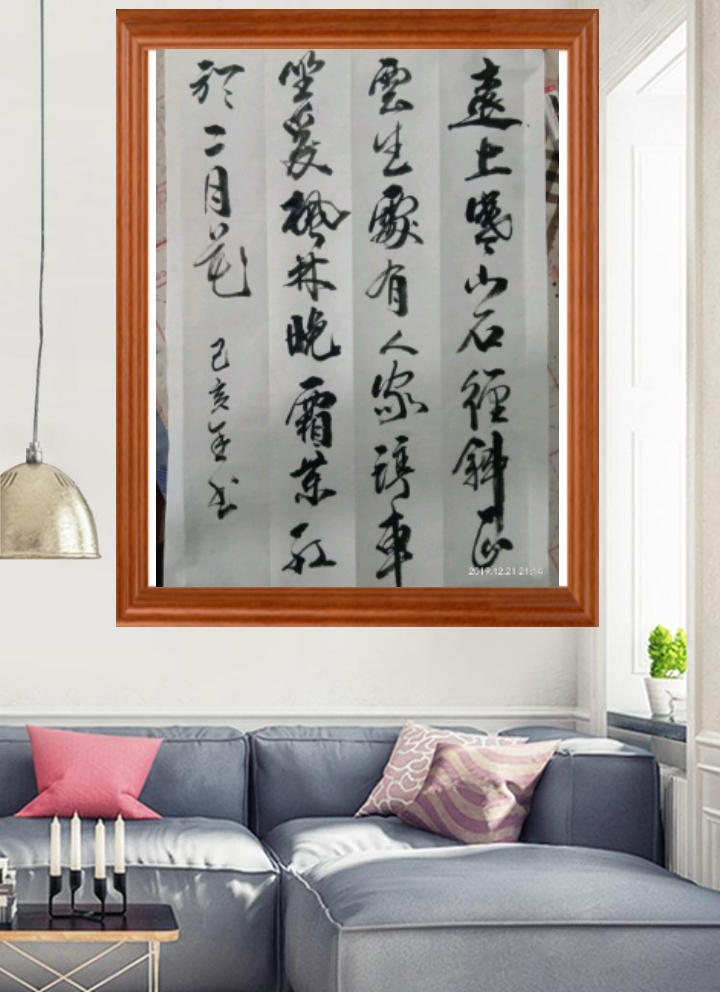 遠上寒山石徑斜白
雲生處有人家停車
坐愛楓林晚霜葉紅
於二月花 己亥年书
2019.12.21 21:14